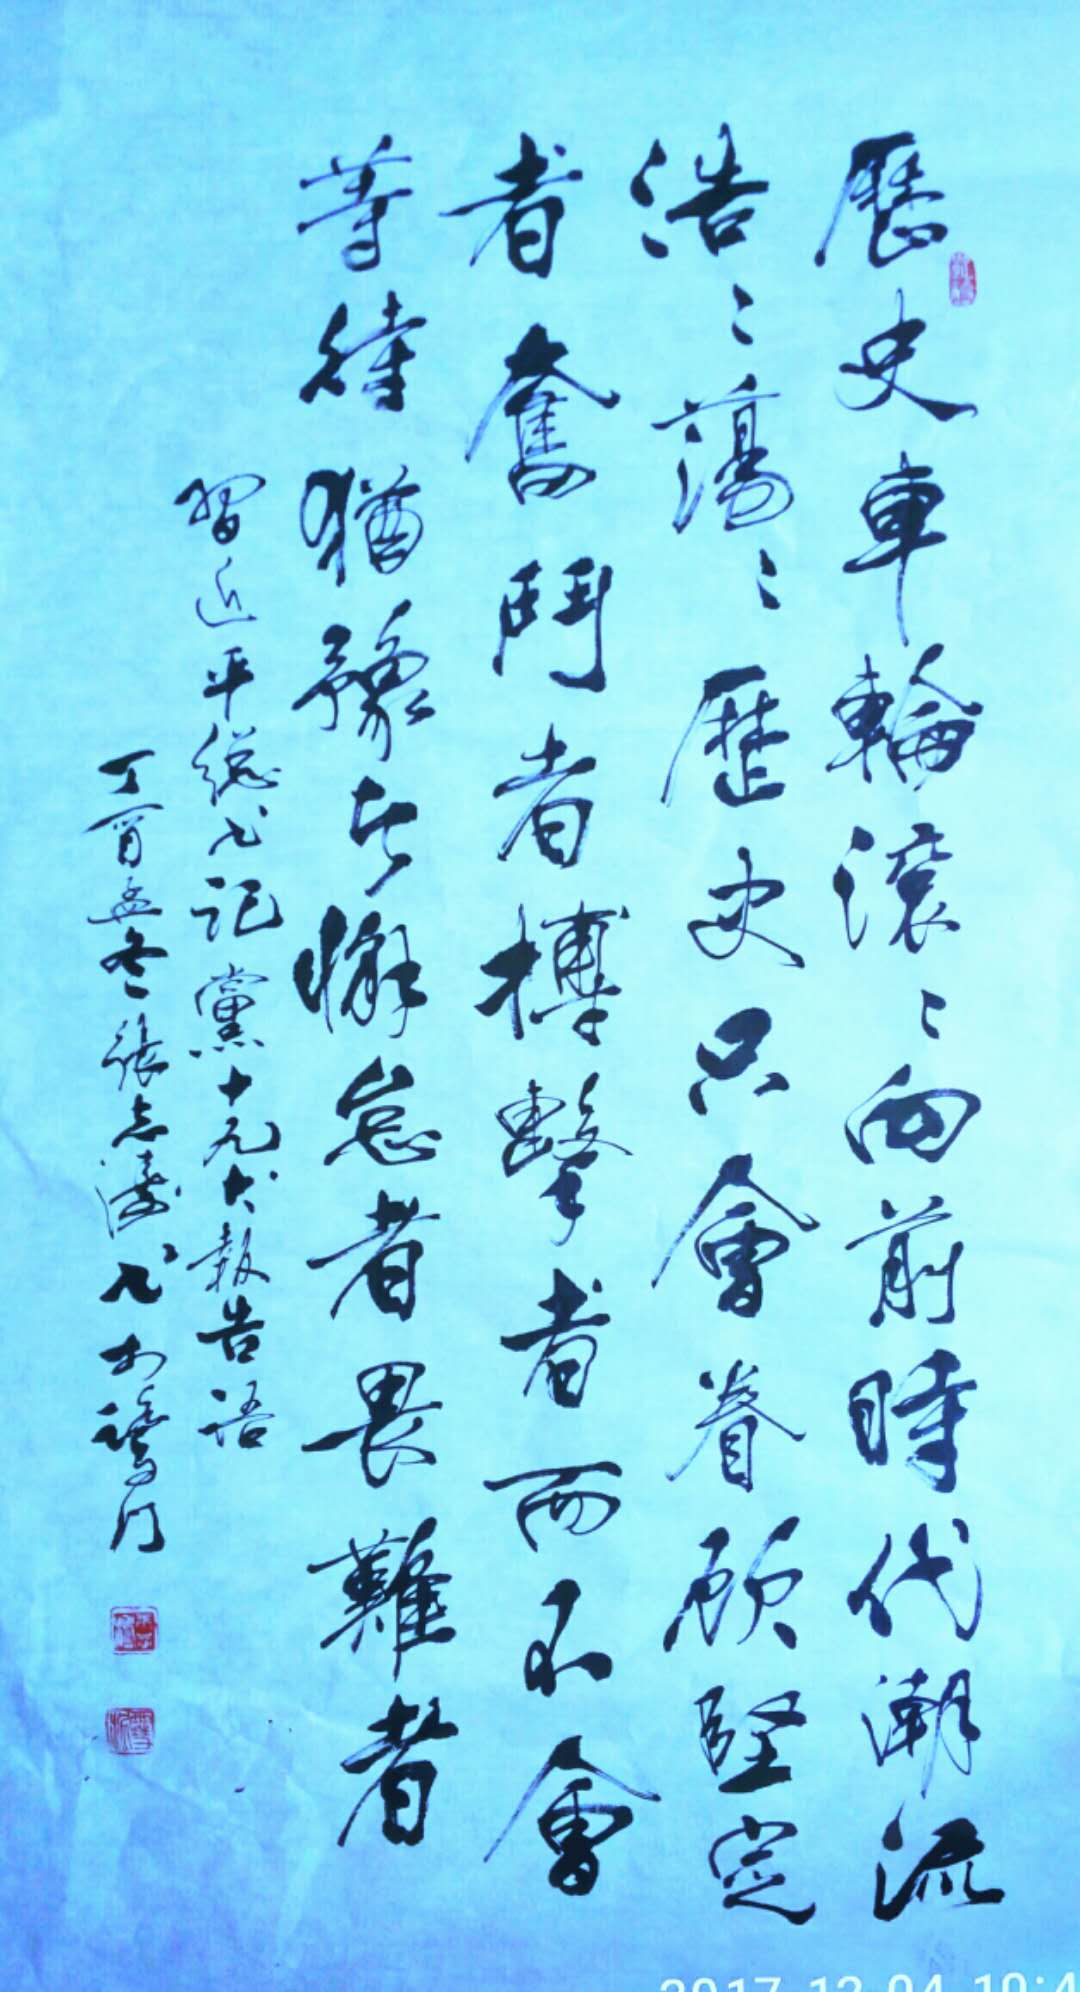 歷史車輪滾〻向前時代潮流
浩〻蕩〻歷史只會眷顧堅定
者奮鬥者搏擊者而不會
等待猶豫者懈怠者畏難者
習近平總書記黨十九大報告語
丁酉孟冬張志濤書於鷺門
2017-12-04 10:4